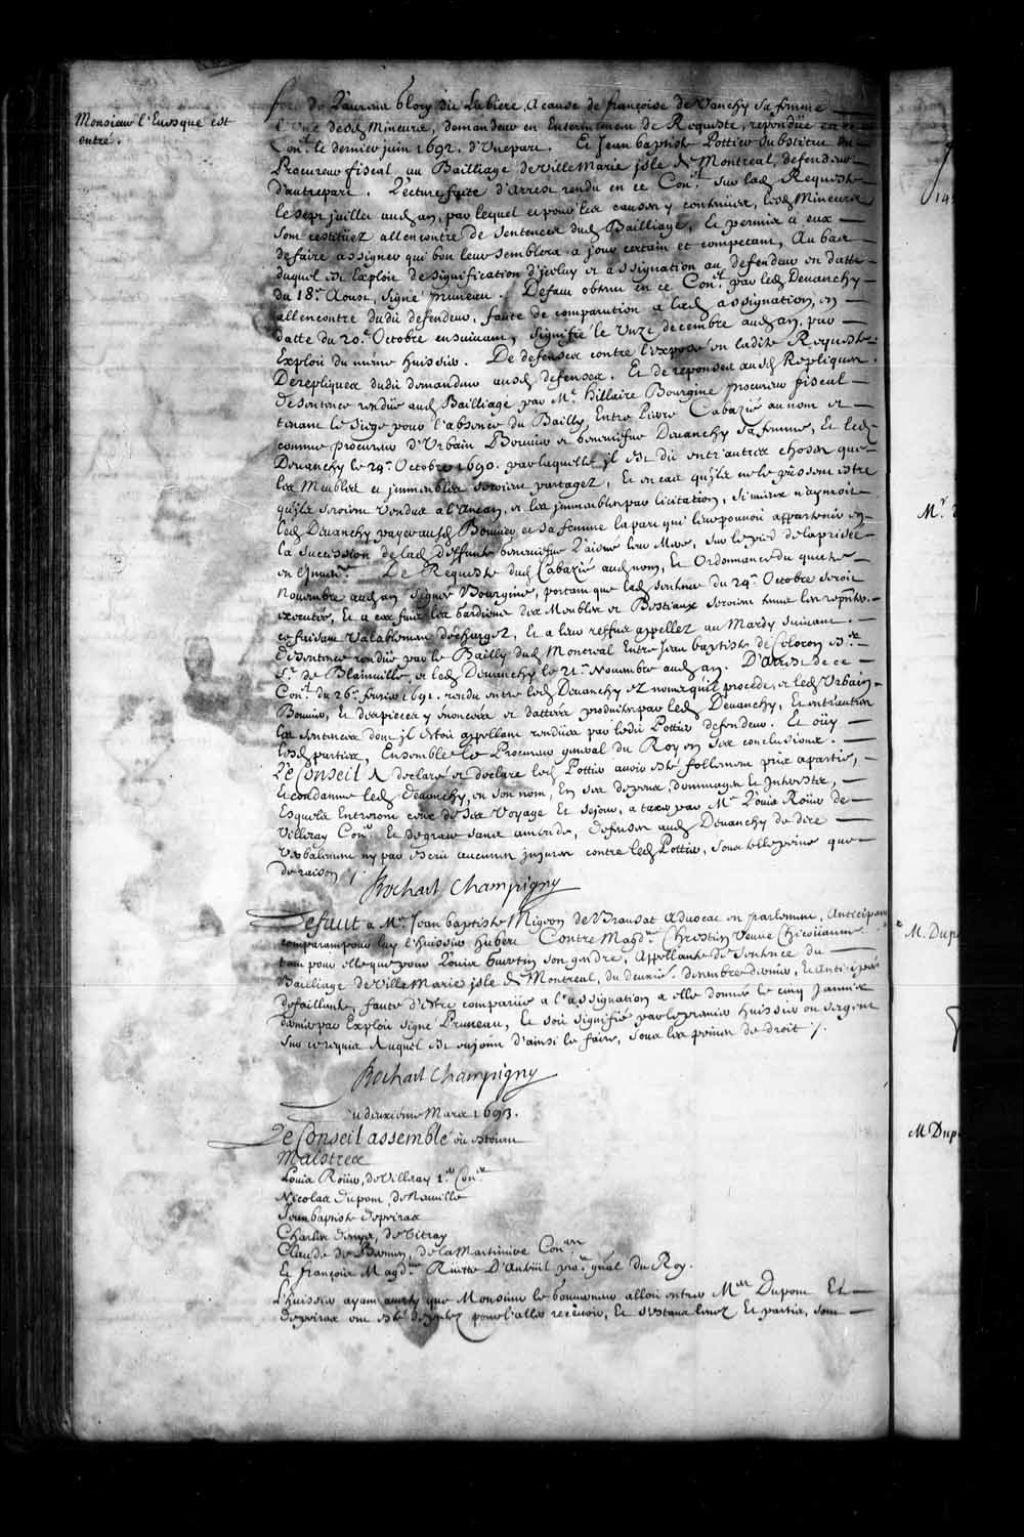 Monsieur l'Euesque est
entré.
de Laurens Glory dit Labiere, A cause de françoise de Vanchy sa femme
Mineurs, demandeur en Enterinement de Requeste, répondüe en ce
Conl. le dernier juin 1692. d'Vnepart. Et Jean baptiste Pottier Substitut du
Procureur fiscal au Bailliage de VilleMarie isle de Montreal, defendeur
d'autrepart. Lecture faite d'arrest rendu en ce Conl. sur lad Requeste
le sept juillet aud an, par lequel et pour les causes y contenües, lesd Mineurs
sont restituez allencontre de sentences dud Bailliage, et permis a eux
de faire assigner qui bon leur semblera a jour certain et competant, Au bas
duquel est Exploit de signification d'iceluy et assignation au defendeur en datte
du 18e. Aoust, signé Pruneau. Defaut obtenu en ce Conl. par led Deuanchy
allencontre dudit defendeur, faute de comparution a lad assignation, en
datte du 20e. Octobre ensuiuant, signifié le Vnze decembre aud an, par
Exploit du même huissier. De defenses contre l'exposé en ladite Requeste
De repliques dudit demandeur ausd defenses. Et de reponses ausd Repliques.
De sentence rendüe aud Bailliage par Me. hillaire Bourgine procureur fiscal
tenant le siege pour l'absence du Bailly, Entre Pierre Cabazié au nom et
comme procureur d'Urbain Bouuier et Deuanchy sa femme, Et led
Deuanchy le 24e. Octobre 1690. par laquelle il est dit entr'autres choses que
les Meubles et immeubles seroient partagez, Et en cas qu'ils ne le püssent estre
qu'ils seroient vendus a l'ancan, et les immeubles par licitation, si mieux n'aymoit
led Deuanchy payer ausd Bouuier et sa femme la part qui leur pouuoit appartenir en
la succession de lad deffunte leur Mere, sur le pied de la prisée
en De Requeste dud Cabazié aud nom, Et Ordonnance du quatre
Nouembre aud an signée Bourgine, portant que lad sentence du 24e. Octobre seroit
executée, Et a ce faire les Gardiens des Meubles et Bestiaux seroient tenus les
ce faisant valablement déchargez, Et a leur reffus appellez au Mardy suiuant.
De Sentence rendüe par le Bailly dud Montreal Entre Jean baptiste
Sr. de Blainuille, et led Deuanchy le 21e. Nouembre aud an. D'arrest de ce
Conl. du 26e. feurier 1691. rendu entre led Deuanchy ez noms qu'il procede, et led Vrbain
Bouuier, Et des pieces y énoncées et dattées produites par led Deuanchy, Et entr'autres
les sentences dont il estoit appellant rendües par ledit Pottier defendeur. Et oüy
lesd parties, Ensemble le Procureur general du Roy en ses conclusions.
Le Conseil A declaré et declare led Pottier auoir esté follement pris a partie,
Et condamne led Deuanchy, en son nom, En ses depens, dommages Et Interestz,
Esquelz Entreront ceux de ses voyage Et sejour, a taxer par Me. Louis Roüer de
Villeray Coner. Et de grace sans amende, defenses aud Deuanchy de dire
Verbalement ny par Escrit aucunes injures contre led Pottier, sous telle peine que
de raison ./.
Bochart Champigny
Defaut a Me. Jean baptiste Migeon de Bransat Aduocat en parlement, Anticipant
comparant pour luy l'huissier hubert Contre Magdne. Chrestien Veuue Chicoüanne
tant pour elle que pour Louis Guertin son gendre, Appellante de Sentence du
Bailliage de VilleMarie isle de Montreal, du decembre dernier, Et Anticipée
defaillante, faute d'estre comparüe a l'assignation a elle donnée le cinq Januier
dernier par Exploit signé Pruneau, Et soit signifié par le premier huissier ou sergent
sur ce requis Auquel est enjoint d'ainsi le faire, sous les peines de droit ./.
Bochart Champigny
Du deuxiéme Mars 1693.
Le Conseil assemblé ou estoient
Maistres
Louis Roüer, de Villeray 1er. Coner.
Nicolas dupont, de Neuuille
Jean baptiste depeiras
Charles denys, de Vitray
Claude de Bermen, de la Martiniere Coners
Et françois Magdne. Ruette D'Auteüil pror. gñal du Roy.
L'huissier ayant auerty que Monsieur le Gouuerneur alloit entrer Mes. Dupont Et
depeiras ont esté deputez pour l'aller receuoir, Et sestans leuez Et partis, sont
Mr.
M. Dup
M Dup